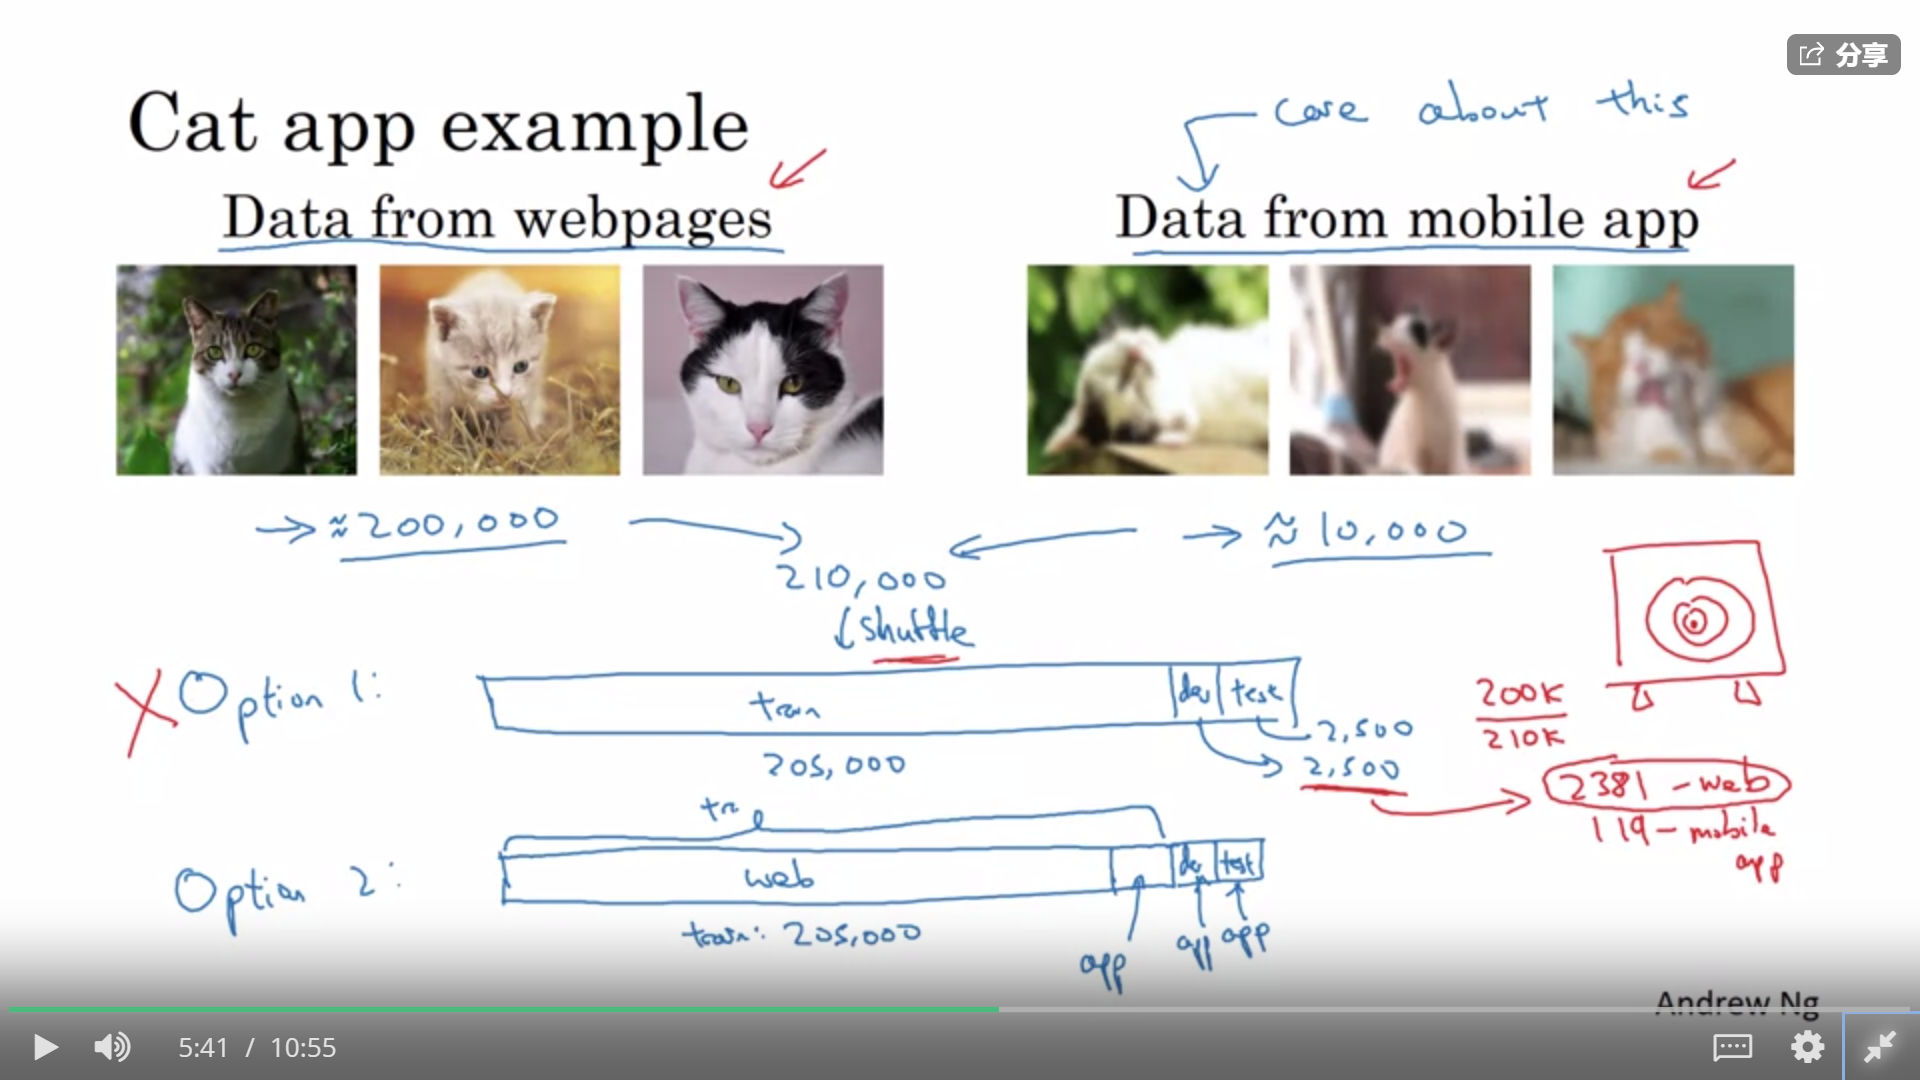 分享
Cat app example
care about this
Data from webpages
Data from mobile app
≈200,000
≈ 10,000
210,000
shuffle
Option 1:
train
dev
test
205,000
2,500
2,500
200K
210K
2381 - web
119 - mobile
app
Option 2:
web
dev
test
train: 205,000
app
app
app
Andrew Ng
5:41 / 10:55